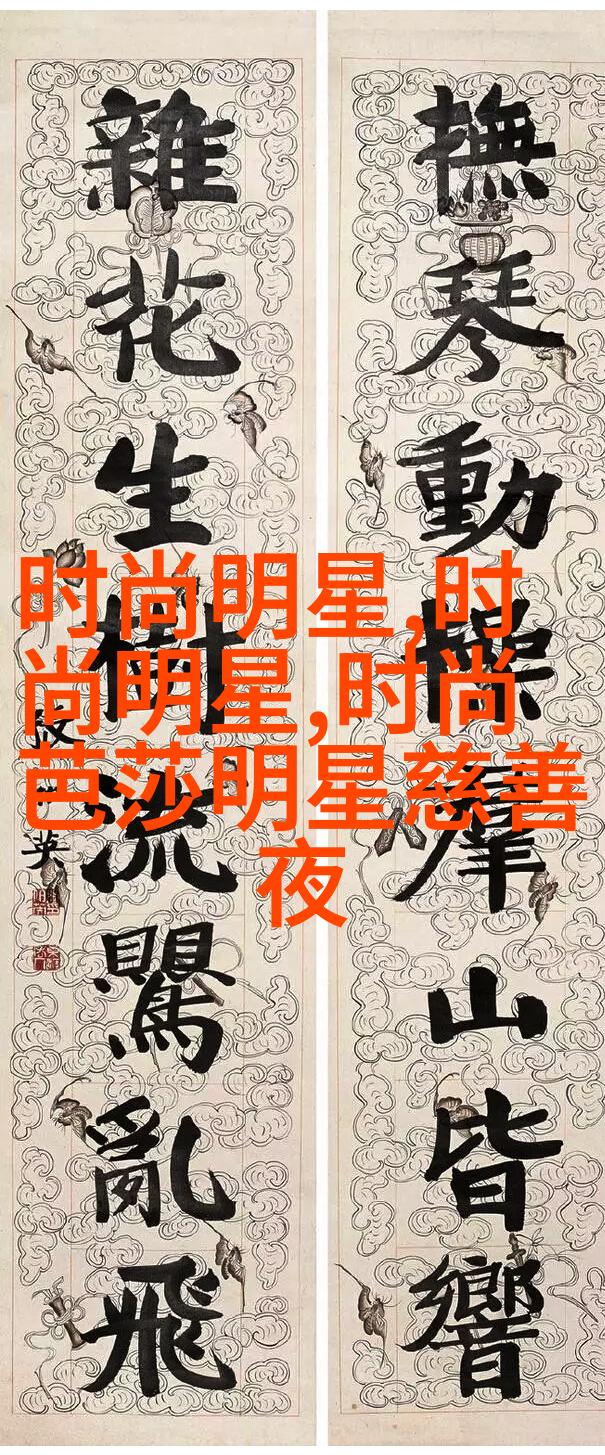 撫琴動操羣山皆響
雜花生樹流鶯亂飛
時尚明星,时
尚明星,时尚
芭莎明星慈善
夜